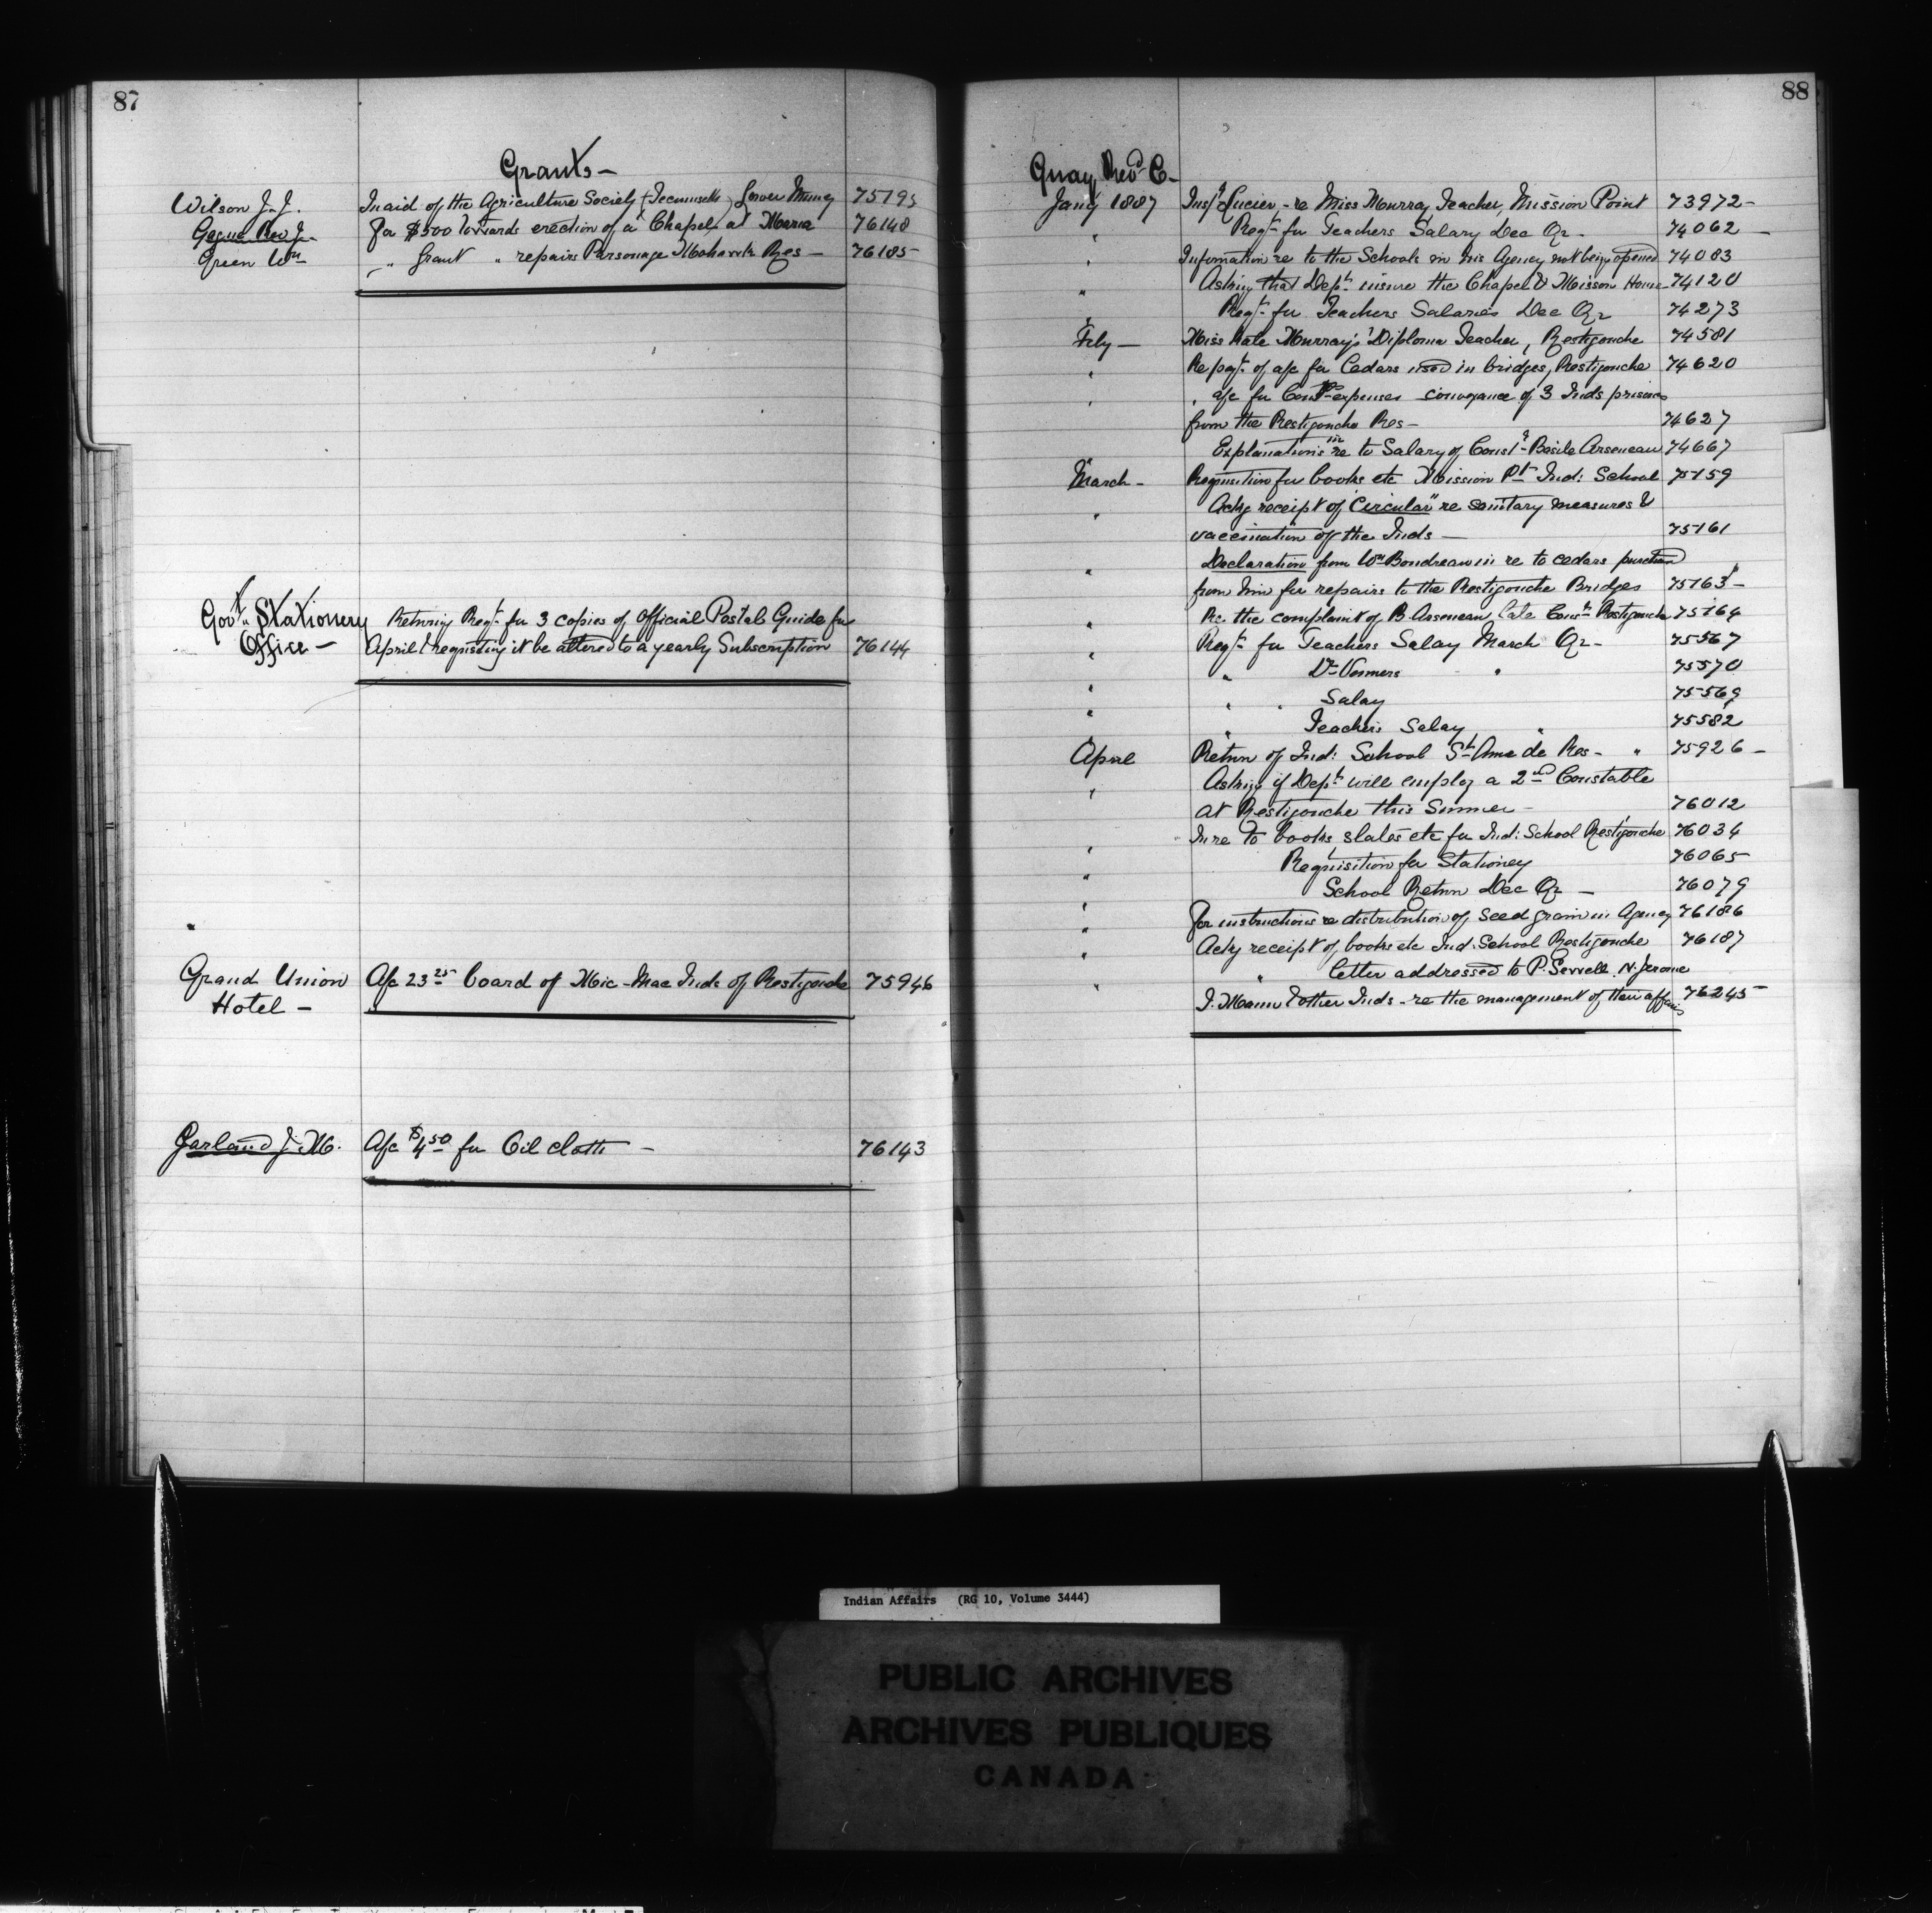 87
Grants -
Wilson J. J. In aid of the Agriculture Society (Tecumseth) Lower Muncey 75195
Gagné Rev J. For $500 towards erection of a Chapel at Maria 76148
Green Wm " Grant " repairs Parsonage Mohawk Res - 76185
Govt. Stationery Returng Reqt. for 3 copies of Official Postal Guide for
Office - April & requesting it be altered to a yearly Subscription 76144
Grand Union A/c 23 25 board of Mic-Mac Inds of Restigouche 75946
Hotel -
Garland J. M. A/c $4 50 for Oil cloth - 76143
88
Guay Revd C -
Jany 1887 Inspr Lucier - re Miss Murray Teacher, Mission Point 73972 -
" Reqt. for Teachers Salary Dec Qr - 74062 -
" Information re to the Schools in his Agency not being opened 74083
" Asking that Dept. insure the Chapel & Mission House 74120
" Reqt. for Teachers Salaries Dec Qr 74273
Feby - Miss Kate Murray's Diploma Teacher, Restigouche 74581
" Re payt. of a/c for Cedars used in bridges, Restigouche 74620
" " a/c for expenses conveyance of 3 Inds prisoners
from the Restigouche Res - 74627
" Explanations in re to Salary of Const. Basile Arseneau 74667
March - Requisition for books etc Mission Pt Ind: School 75159
" Ackg receipt of "Circular" re sanitary measures &
vaccination of the Inds - 75161
" Declaration from Wm Boudreau in re to cedars purchased
from him for repairs to the Restigouche Bridges 75163 -
" Re the complaint of B. Arseneau, late Const. Restigouche 75164
" Reqt. for Teachers Salary March Qr - 75567
" " Dr Venners " 75570
" " " Salary 75569
" Teachers Salary " 75582
April Return of Ind: School St Anne de Res - " 75926 -
" Asking if Dept. will employ a 2nd Constable
at Restigouche this Summer - 76012
" In re to books, slates etc for Ind: School Restigouche 76034
" Requisition for Stationey 76065
" School Return Dec Qr - 76079
" For instructions re distribution of seed grain in Agency 76186
" Ackg receipt of books etc Ind. School Restigouche 76187
" " letter addressed to P. Sewell N. Jerome
J. Mann & other Inds - re the management of their affairs 76245
Indian Affairs (RG 10, Volume 3444)
PUBLIC ARCHIVES
ARCHIVES PUBLIQUES
CANADA